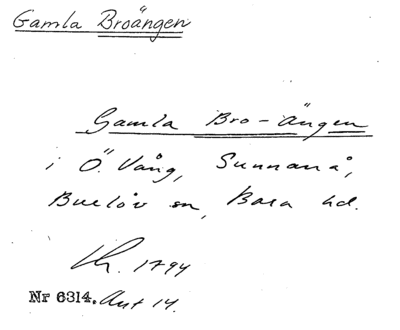 Gamla Broängen
Gamla Bro-Ängen
i Ö. Vång, Sunnanå,
Burlöv sn, Bara hd.
Kr. 1794
Nr 6314. Akt 14.